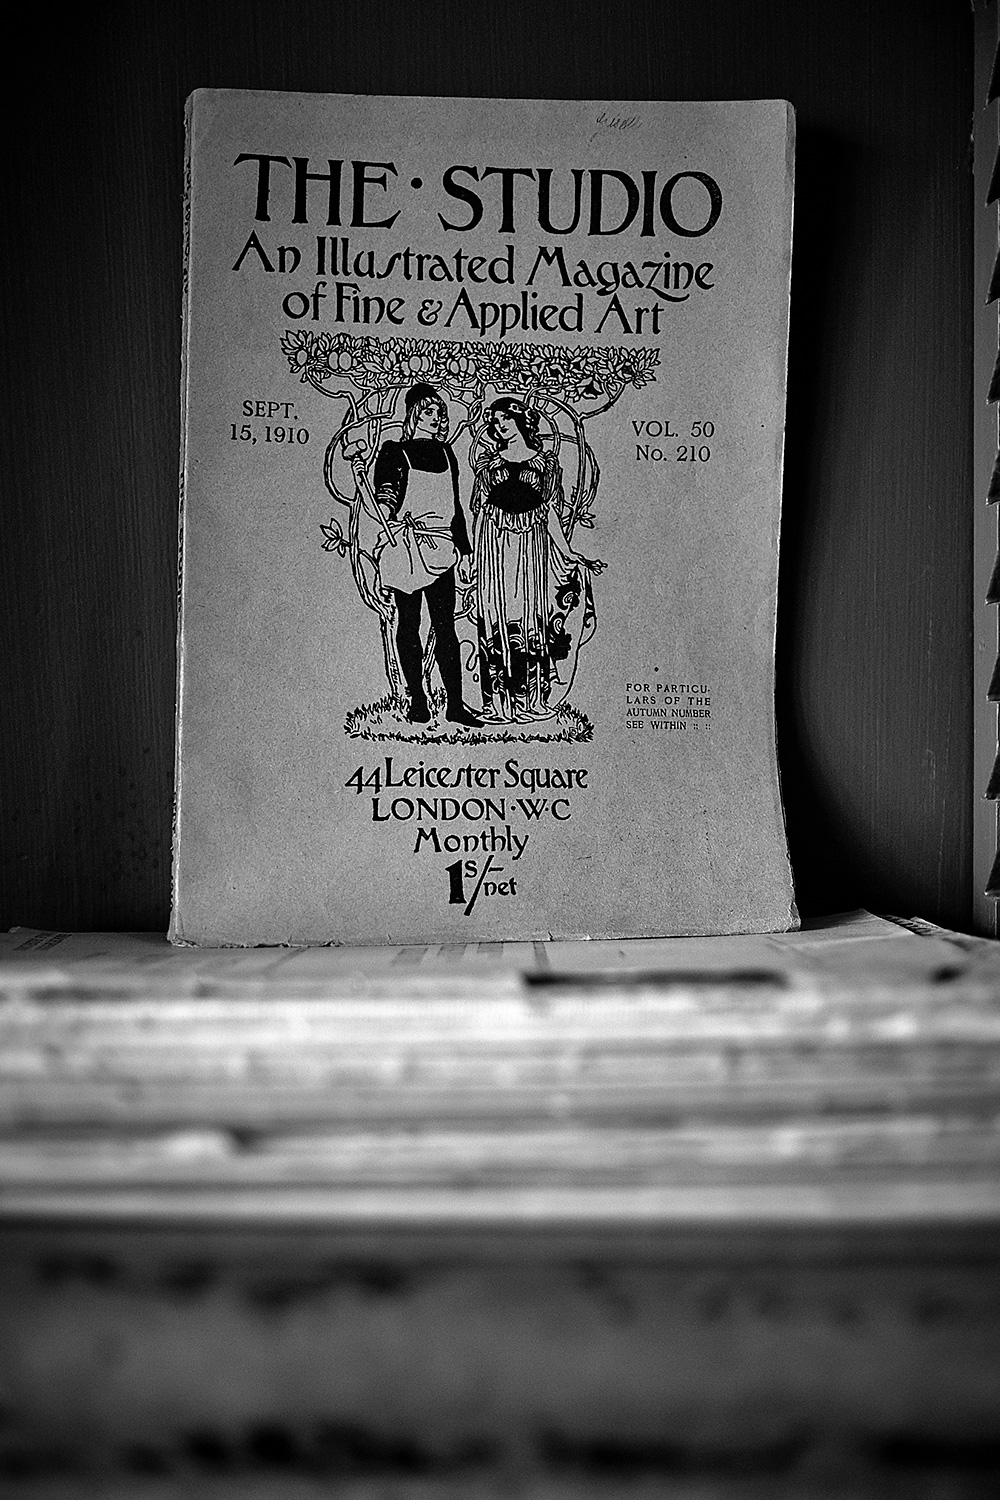 THE · STUDIO
An Illustrated Magazine
of Fine & Applied Art
SEPT.
15, 1910
VOL. 50
No. 210
FOR PARTICU-
LARS OF THE
AUTUMN NUMBER
SEE WITHIN :: ::
44 Leicester Square
LONDON·W·C
Monthly
1s/- net